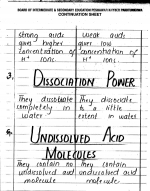 BOARD OF INTERMEDIATE & SECONDARY EDUCATION
CONTINUATION SHEET
strong acids weak acids
give higher give low
concentration of concentration of
H+ ions. H+ ions.
3. DISSOCIATION POWER
They dissociate They dissociate
completely in to a little
water. extent in water.
4. UNDISSOLVED ACID
MOLECULES
They contain no They contain
undissolved acid undissolved acid
molecule molecule.